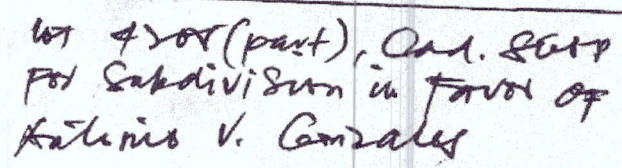 Lot 4205 (part), Cad.
For Subdivision in Favor of
Antonio V. Gonzales